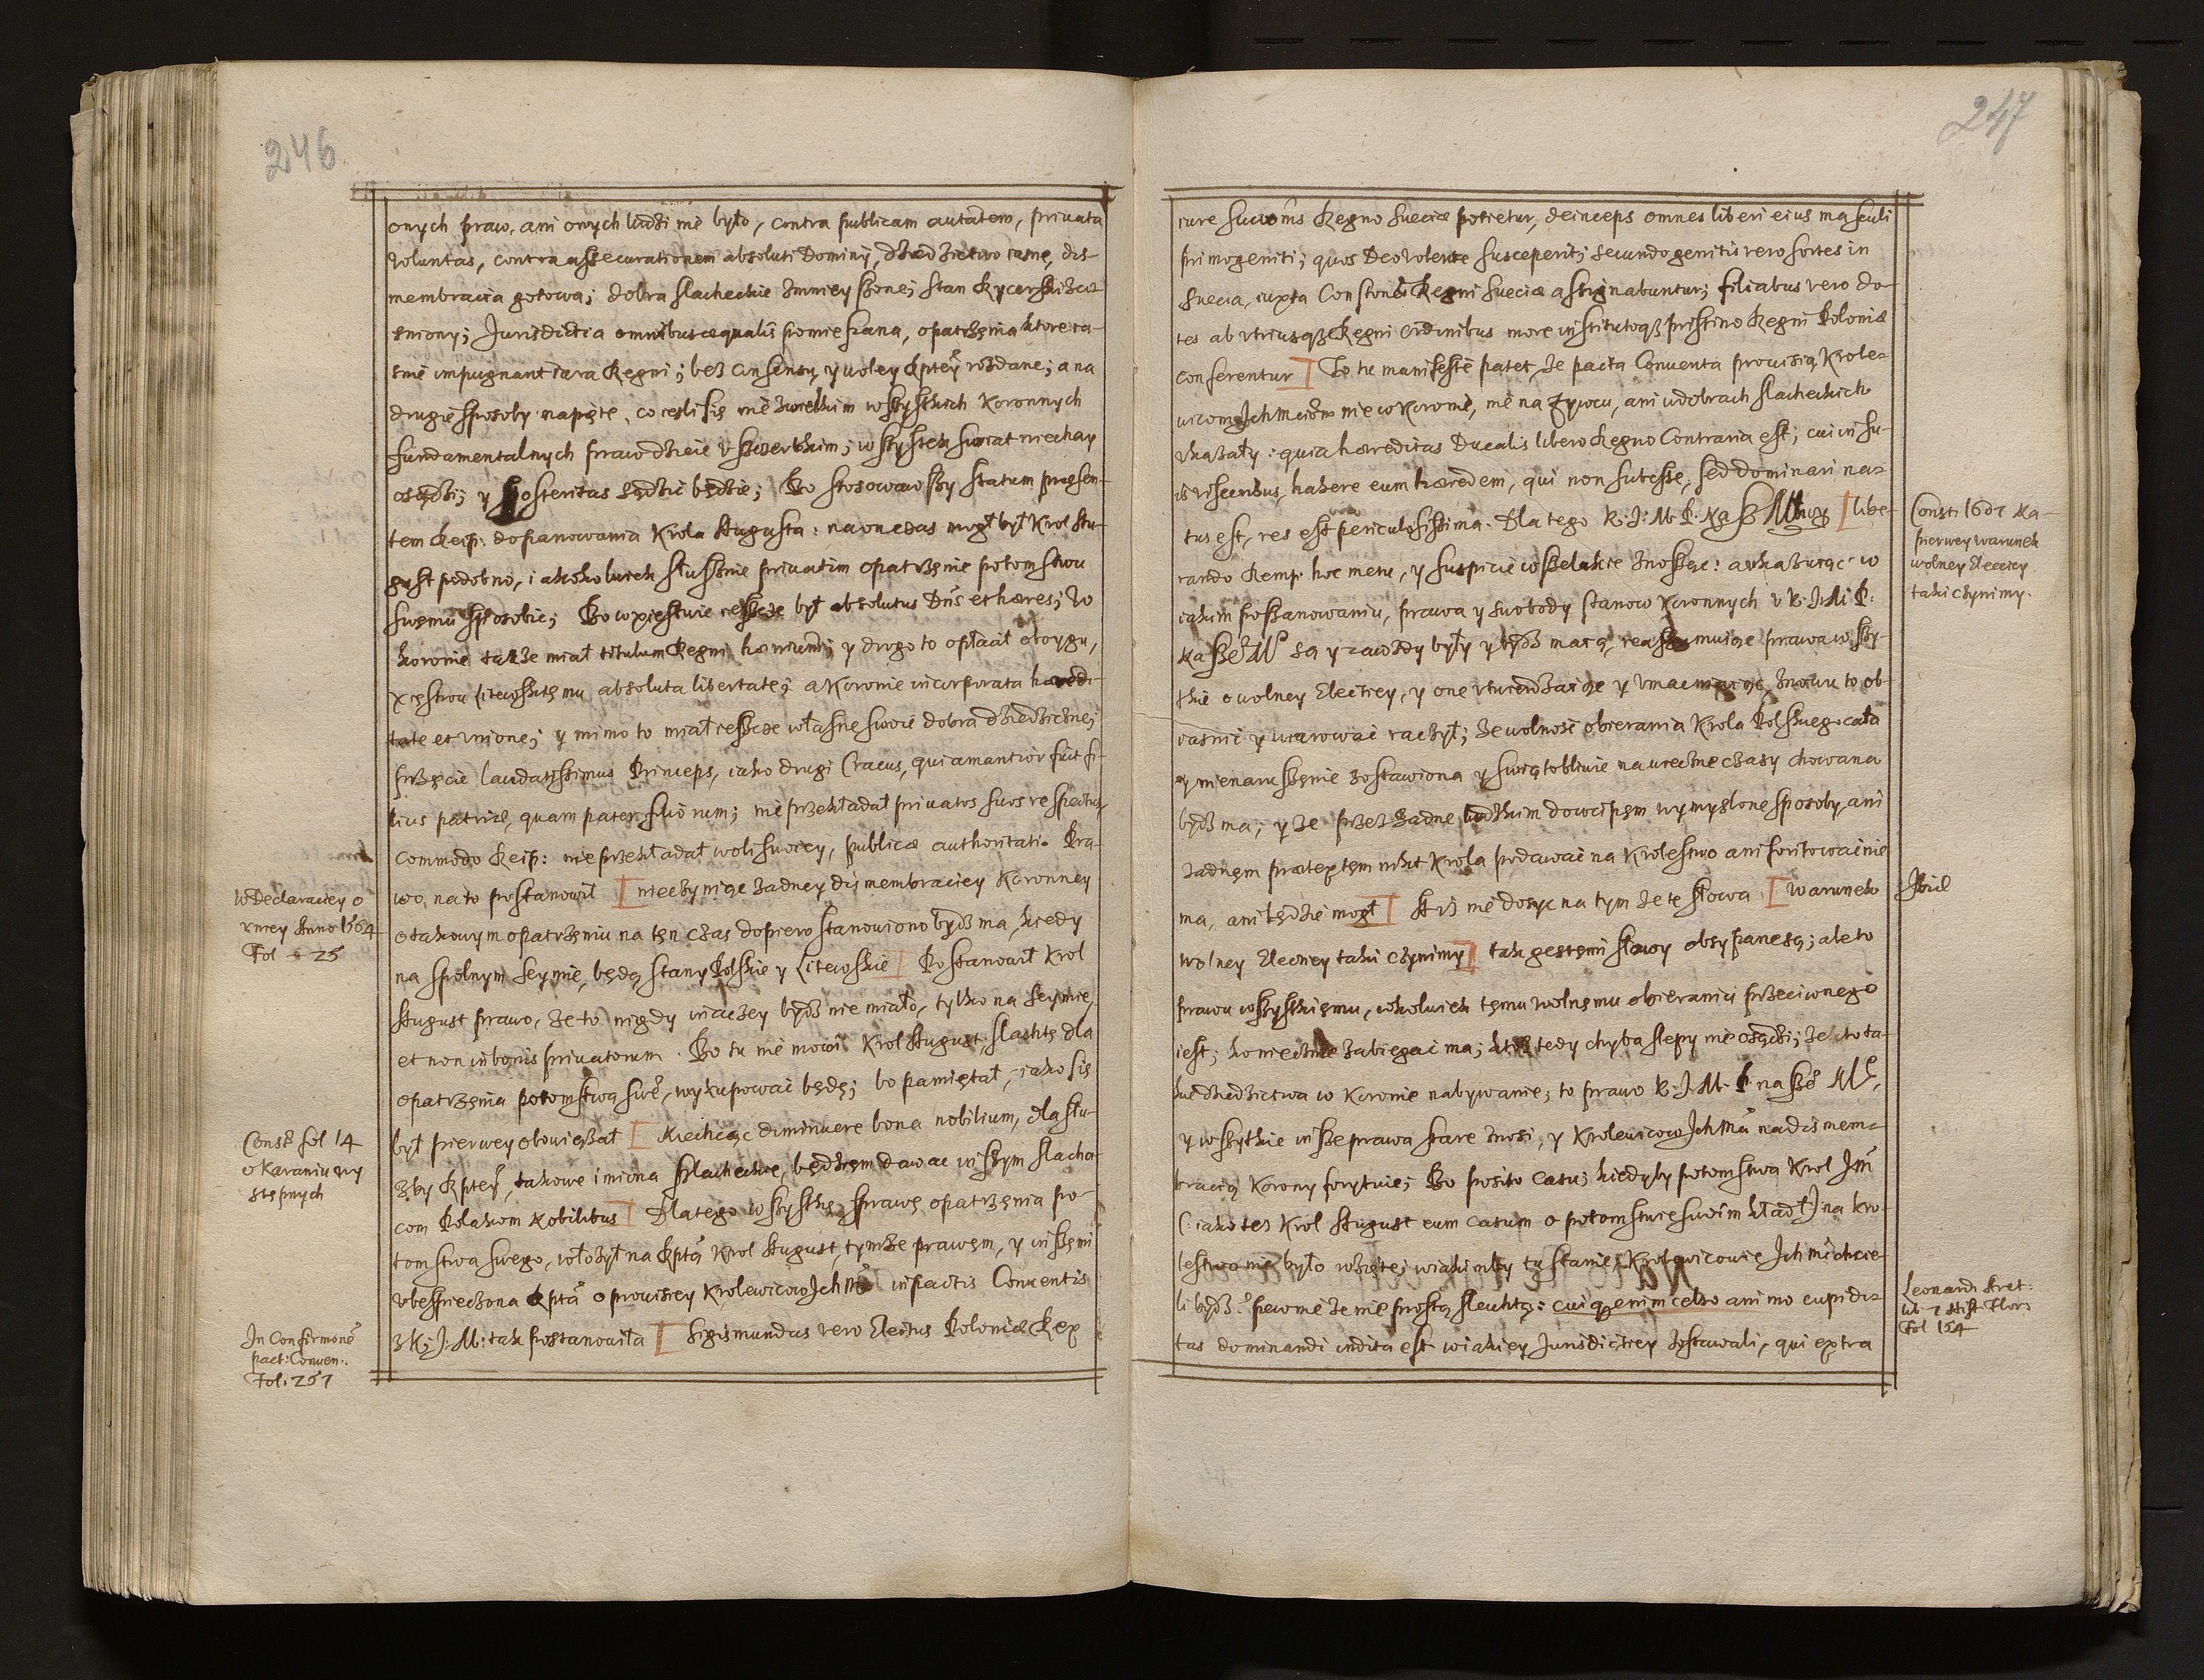 246
onych praw, ani onych ludzi nie było, contra publicam autatem, privata
voluntas, contra assecurationem absoluti Dominij, dziedzictwo iasne, dis-
membracia gotowa; dobra slacheckie zmnieyszone; stan Rycerski
sniony; Jurisdictia omnibus aequalis pomieszana, opatrzenia ktore ia-
snie impugnant iura Regni; bez consensu y woley Rptey rozdane; a na
drugie sposoby napięte, co ieslisię nie z wielkim wszystkich Koronnych
fundamentalnych praw dzieie uszczerbkim; wszystek swiat niechay
osądzi; y Posteritas sądzić będzie; Bo stosowawszy statum praesen-
tem Reip: do panowania Krola Augusta: na on czas mogł był Krol Au-
gust podobno, iakozkolwiek słusznie privatim opatrzenie potomstwu
swemu sposobić; Bo w xięstwie ieszcze był absolutus Dns et haeres; w
koronie także miał titulum Regni haerium; y drogo to opłacił oboygu,
Xięstwu Litewskiemu absoluta libertate; a Koronie incorporata haeredi-
tate et unione; y mimo to miał ieszcze własne swoie dobra dziedziczne;
przecie laudatissimus Princeps, iako drugi Cracus, qui amantior fuit fi-
lius patriae, quam pater filiorum; nie przekładał privatos suos respectus
commodo Reip: nie przekładał woli swoiey, publicae authoritati. Pra-
wo, na to postanowił [ niechcąc żadney dismembraciey Koronney
o takowym opatrzeniu na ten czas dopiero stanowiono bydź ma, kiedy
na spolnym Seymie, będą stany Polskie y Litewskie ] Postanowił Krol
August prawo, że to nigdy inaczey bydź nie miało, tylko na Seymie,
et non in bonis privatorum. Bo tu nie mowi Krol August Slachtę dla
opatrzenia potomstwa swe°, wykupować będę; bo pamiętał, iako się
był pierwey obowiązał [ Niechcąc diminuere bona nobilium, dla słu-
żby Rptey, takowe imiona Szlacheckie, będziem dawać inszym slachci-
com Polakom Nobilibus ] Dlatego wszystkę sprawę opatrzenia po-
tomstwa swego, włożył na Rptą Krol August, tymże prawem, y inszemi
ubespieczona Rpta o prowisiey Krolewicow Jch Mci in pactis Conventis
z K: J: M: tak postanowiła [ Sigismundus vero Electus Poloniae Rex
W Declaraciey o
vniey Anno 1564
Fol 25
Const fol 14
o Karaniu wy
stępnych
In Confirmone
pact: Conven:
Fol: 257
247
iure Regno Sueciae potietur, deinceps omnes liberi eius masculi
primogeniti; quos Deo volente susceperit; secundogenitis vero sortes in
Suecia, iuxta Regni Sueciae assignabuntur; filiabus vero do-
tes ab utriusque Regni ordinibus more institutoque pristino Regni Poloniae
conferentur ] To tu manifeste patet, że pacta Conventa prowisią Krole-
wicom Jch Mciom nie w Koronie, nie na Zywcu, ani w dobrach slacheckich
ukazały: quia haereditas Ducalis libero Regno Contraria est; cui in su-
is visceribus, habere eum haeredem, qui non subesse, sed dominari na-
tus est, res est periculosissima. Dla tego K: J: M: P: Nasz Mwy [ libe-
rando Remp. hoc metu, y suspicie wszelakie znosząc: a ukazuiąc w
iakim poszanowaniu, prawa y swobody stanow Koronnych u K: J: M: P:
Nasze° M są y zawzdy były y bydź maią, reassumuiąc prawa wszy-
tkie o wolney Electiey, y one utwierdzaiąc y umacniaiąc, znowu to ob-
iasnić y warować raczył; że wolność obierania Krola Polskiego cała
y nienaruszenie zostawiona y swiętobliwie na wieczne czasy chowana
bydź ma; y że przez żadne ludzkim dowcipem wymyslone sposoby, ani
żadnem praetextem nikt Krola podawać na Krolestwo ani foritować nie
ma, ani będzie mogł ] Aż nie dosyc na tym że te słowa [ Warunek
wolney Elecciey taki czynimy ] tak gestemi słowy obsypane są; ale to
prawu wszystkiemu, cokolwiek temu wolnemu obieraniu przeciwnego
iest; koniecznie zabiegać ma; ktoż tedy chyba slepy nie osądzi; że to ta-
kie dziedzictwa w Koronie nabywanie; to prawo K: J: M: P. nasze° M,
y wszytkie insze prawa stare znosi, y Krolewicow Jch Mci na dismem-
bracią Korony forytuie; Bo posito casu; kiedyby potomstwa Krol Jm
(: iako tez Krol August eum casum o potomstwie swoim kładł) na kro-
lestwo nie było wzięte; w iakimby tu stanie, Krolewicowie Jch Mci chcie-
li bydź? pewnie że nie prostą slachtą: cuique enim celso animo cupidi-
tas dominandi indita est w iakiey Jurisdictiey zostawali, qui extra
Const: 1607 Na-
pierwey warunek
wolney Elecciey
taki czynimy.
Ibid
Leonardi Aret:
lib 7 Hist: Flor:
Fol 154